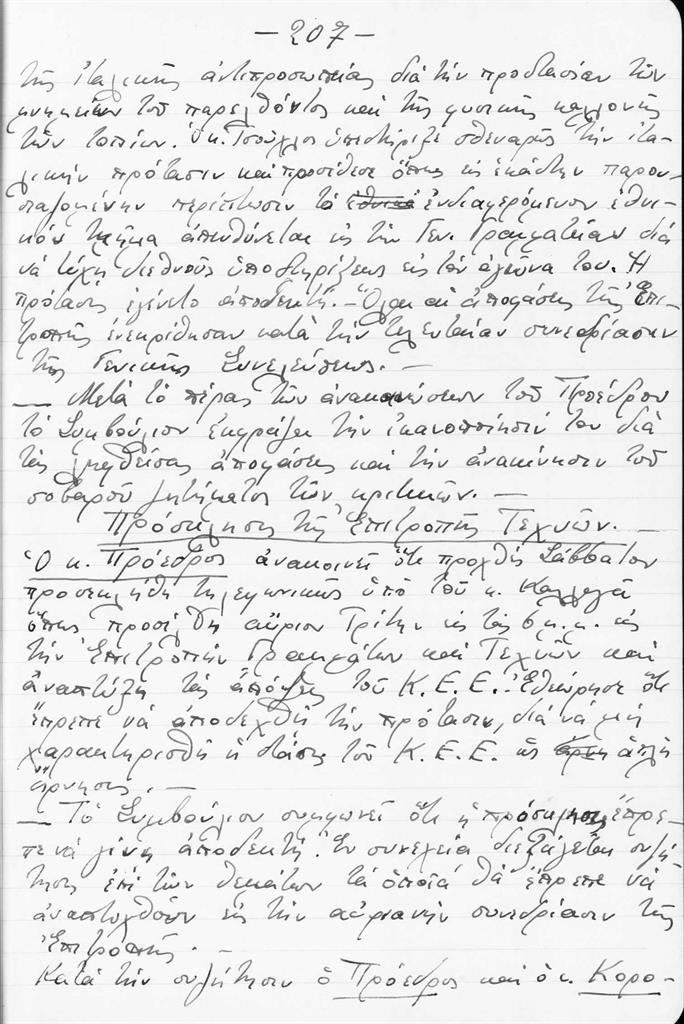 — 207 —
τῆς ἰταλικῆς ἀντιπροσωπείας διὰ τὴν προστασίαν τῶν
μνημείων τοῦ παρελθόντος καὶ τῆς φυσικῆς καλλονῆς
τῶν τοπίων. Ὁ κ. Τσοῦχλος ὑπεστήριξε σθεναρῶς τὴν ἰτα-
λικὴν πρότασιν καὶ προσέθεσε ὅπως εἰς ἑκάστην παρου-
σιαζομένην περίπτωσιν τὸ ἐθνικὸ ἐνδιαφερόμενον ἐθνι-
κὸν τμῆμα ἀπευθύνεται εἰς τὴν Γεν. Γραμματείαν διὰ
νὰ τύχῃ διεθνοῦς ὑποστηρίξεως εἰς τὸν ἀγῶνα του. Ἡ
πρότασις ἐγένετο ἀποδεκτή. — Ὅλαι αἱ ἀποφάσεις τῆς Ἐπι-
τροπῆς ἐνεκρίθησαν κατὰ τὴν τελευταίαν συνεδρίασιν
τῆς Γενικῆς Συνελεύσεως. —
— Μετὰ τὸ πέρας τῶν ἀνακοινώσεων τοῦ Προέδρου
τὸ Συμβούλιον ἐκφράζει τὴν ἱκανοποίησίν του διὰ
τὰς ληφθείσας ἀποφάσεις καὶ τὴν ἀνακίνησιν τοῦ
σοβαροῦ ζητήματος τῶν κριτικῶν. —
Πρόσκλησις τῆς Ἐπιτροπῆς Τεχνῶν. —
Ὁ κ. Πρόεδρος ἀνακοινεῖ ὅτι προχθὲς Σάββατον
προσεκλήθη τηλεφωνικῶς ὑπὸ τοῦ κ. Καλλιγᾶ
ὅπως προσέλθῃ αὔριον Τρίτην εἰς τὰς 6 μ.μ. εἰς
τὴν Ἐπιτροπὴν Γραμμάτων καὶ Τεχνῶν καὶ
ἀναπτύξῃ τὰς ἀπόψεις τοῦ Κ.Ε.Ε. Ἐθεώρησε ὅτι
ἔπρεπε νὰ ἀποδεχθῇ τὴν πρότασιν, διὰ νὰ μὴ
χαρακτηρισθῇ ἡ στάσις τοῦ Κ.Ε.Ε. ὡς ἁπλῆ
ἄρνησις. —
— Τὸ Συμβούλιον συμφωνεῖ ὅτι ἡ πρόσκλησις ἔπρε-
πε νὰ γίνῃ ἀποδεκτή. Ἐν συνεχείᾳ διεξάγεται συζή-
τησις ἐπὶ τῶν θεμάτων τὰ ὁποῖα θὰ ἔπρεπε νὰ
ἀναπτυχθοῦν εἰς τὴν αὐριανὴν συνεδρίασιν τῆς
Ἐπιτροπῆς. —
Κατὰ τὴν συζήτησιν ὁ Πρόεδρος καὶ ὁ κ. Κορο-